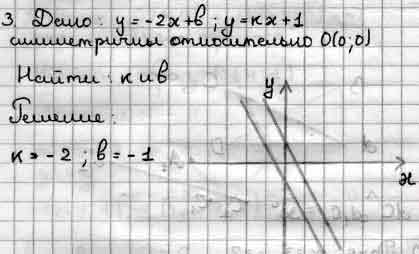 3. Дано: y = -2x + в; y = кx + 1
симметричны относительно О(0;0)
Найти: к и в
Решение:
к = -2; в = -1
y
x